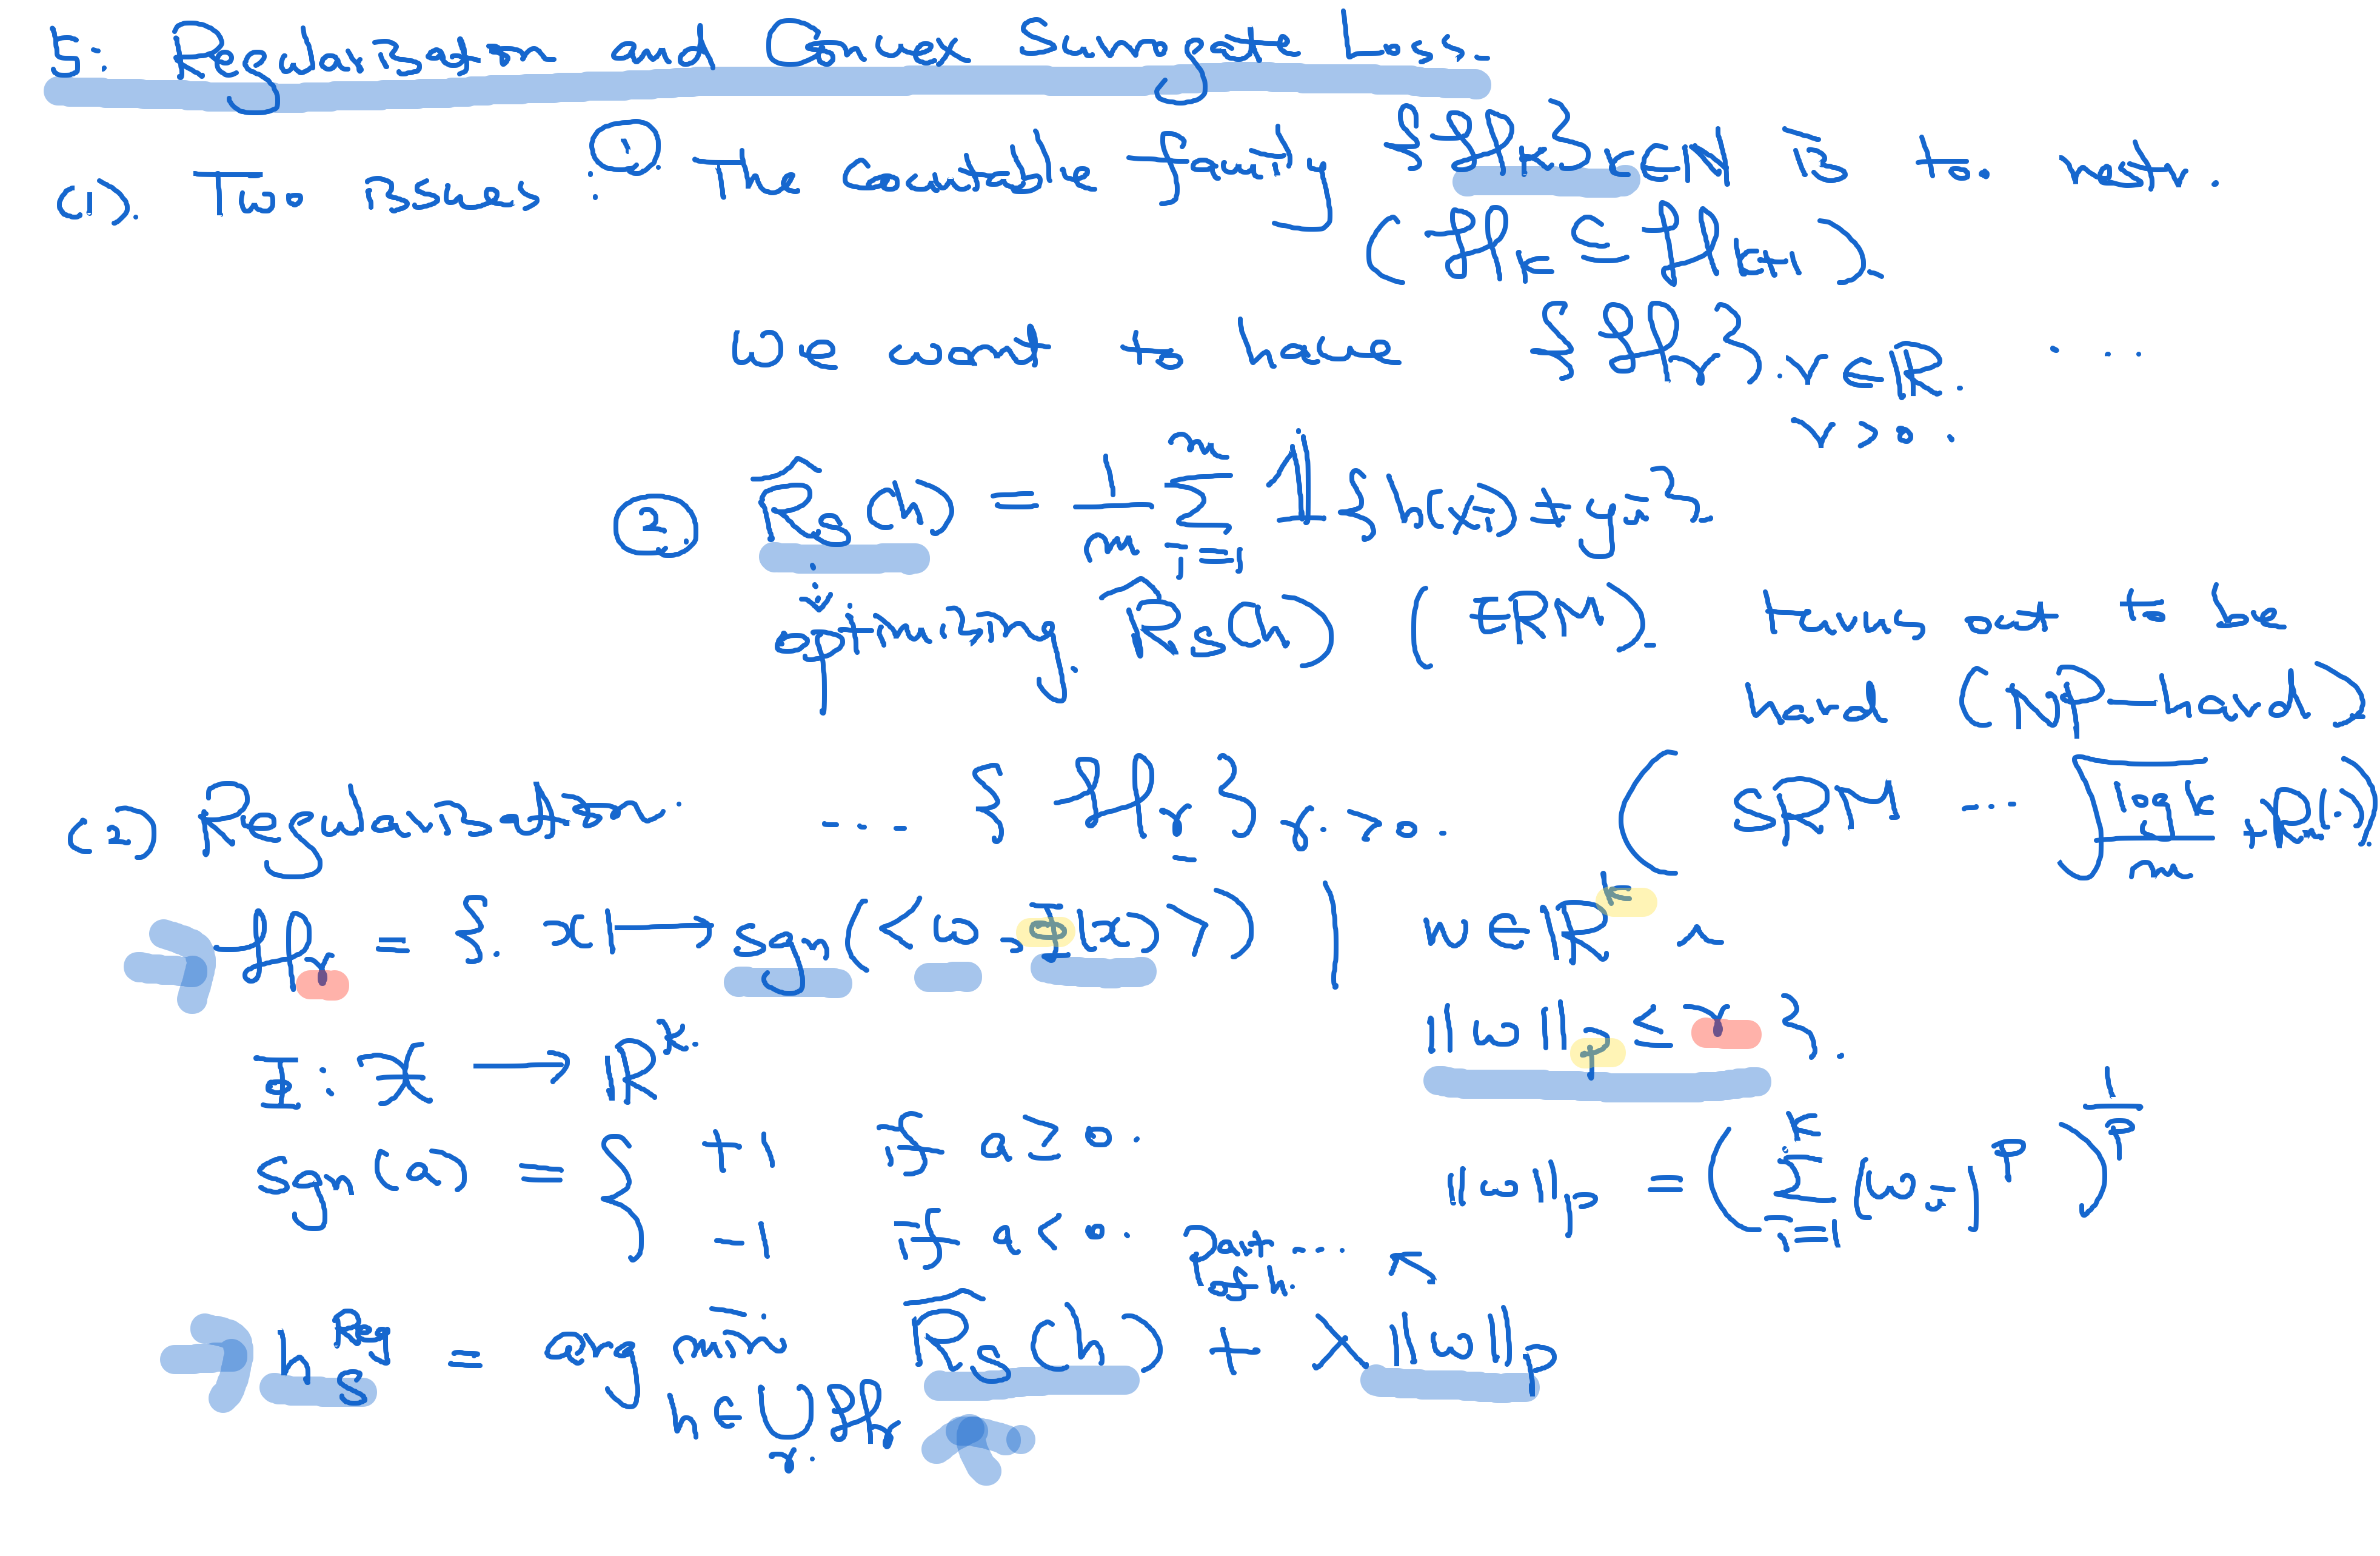 5. Regularization and Convex Surrogate Loss.
(1). Two issues : ①. The countable family {ℋ_k}_{k∈ℕ} is too restr.
(ℋ_k ⊆ ℋ_{k+1}).
We want to have {ℋ_γ}_{γ∈ℝ, γ>0} ...
② R̂_S(h) = 1/m ∑_{i=1}^m 𝟙{h(x_i) ≠ y_i}.
optimising R̂_S(h) (ERM). turns out to be
hard (NP-hard)
(2) Regularization. ... {ℋ_γ}_{γ>0}. (SRM ... √(log k / m) + R(·))
ℋ_γ = { x ↦ sgn(<w, Φ(x)>) | w ∈ ℝ^k ∧
||w||_p ≤ γ }.
Φ : 𝒳 → ℝ^k.
sgn(a) = { +1 if a ≥ 0.
-1 if a < 0.
||w||_p = (∑_{i=1}^k |w_i|^p)^{1/p}
h_S^{Reg} = arg min_{h ∈ ∪_γ ℋ_γ} R̂_S(h) + λ||w||_p